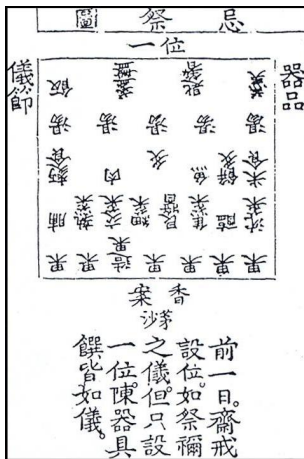 忌祭圖
一位
器品
儀節
飯 盞盤
湯 湯 湯 湯 湯
麪食 肉 炙 魚 米食
脯 熟菜 醢 沈菜
果 果 造果 果 果 果 果
香案
茅沙
前一日。齋戒
設位。如祭禰
之儀。但只設
一位。陳器具
饌皆如儀。